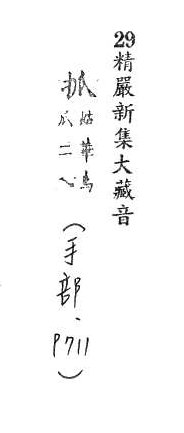 29精嚴新集大藏音
抓
姑華鳥
爪二八
（手部、P711）